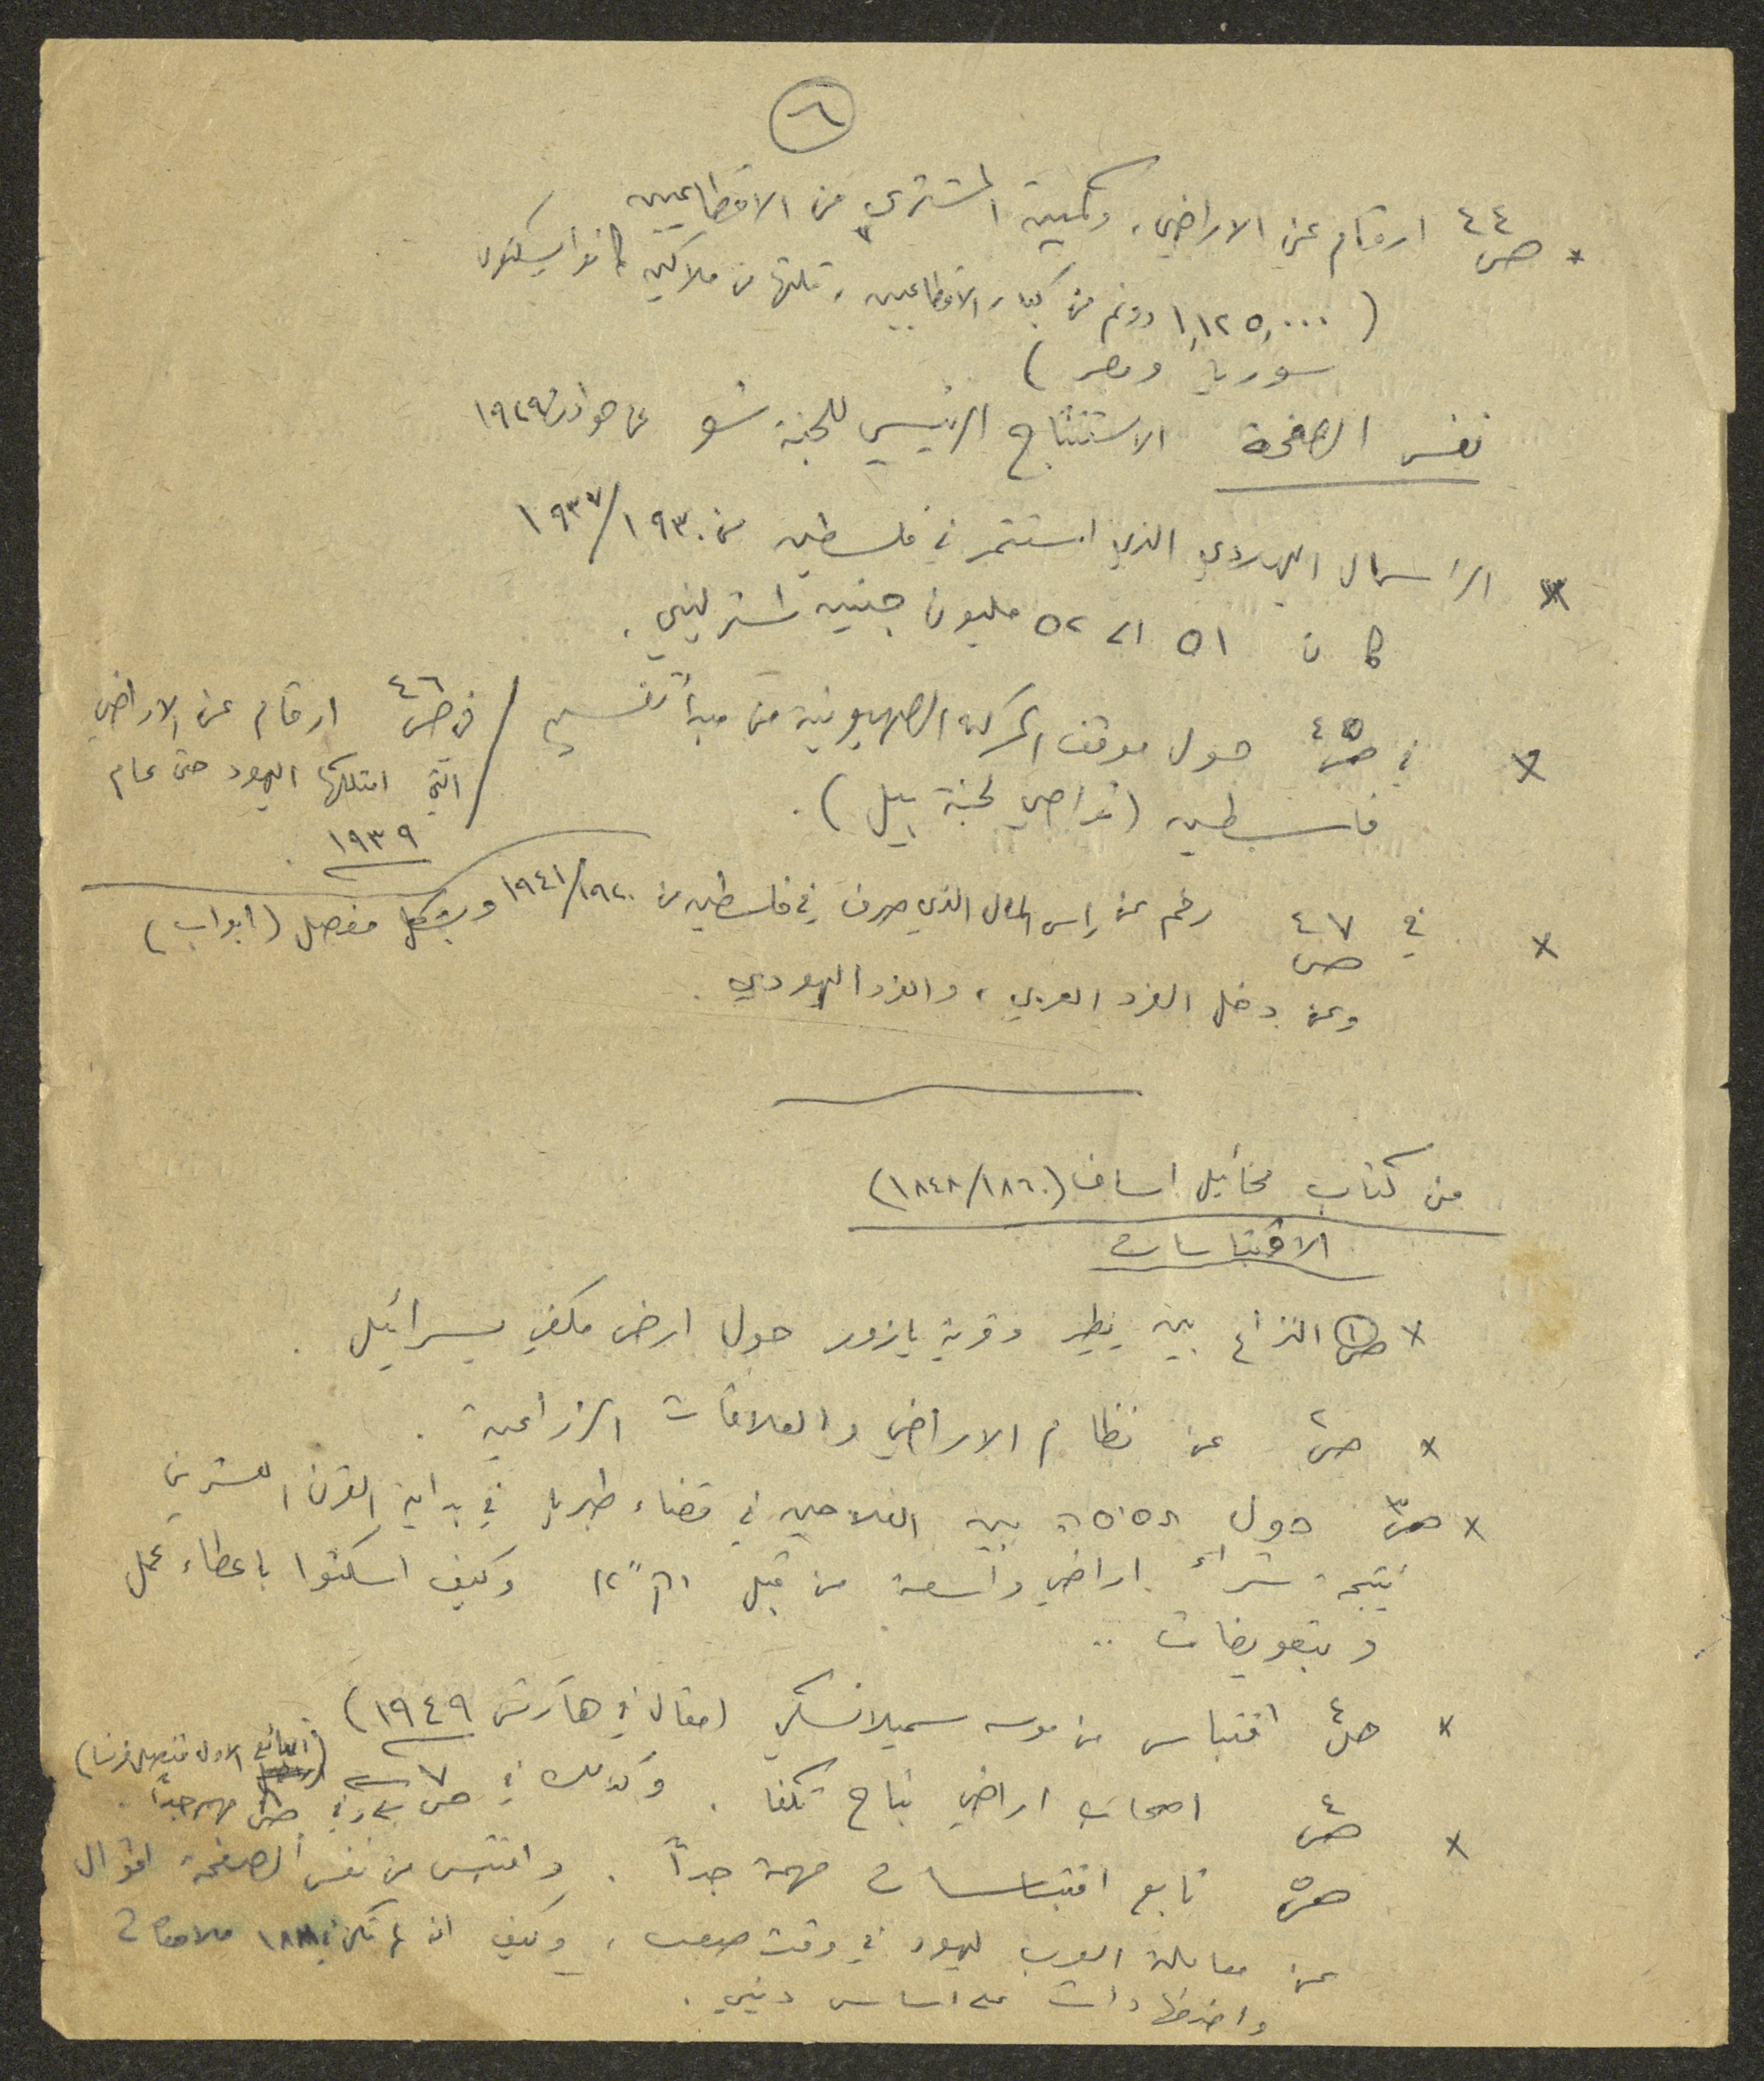 ٦
* ص٤٤ ارقام عن الاراضي، وكمية المشترى من الاقطاعيين
( ١,١٢٥,٠٠٠ دونم من كبار الاقطاعيين، ثلثها من ملاكين كانوا يسكنون
سوريا ومصر )
نفس الصفحة الاستنتاج الرئيسي للجنة شو عن حوادث ١٩٢٩
* الراسمال اليهودي الذي استثمر في فلسطين من ١٩٣٠/١٩٣٧
كان ٥١ الى ٥٢ مليون جنيه استرليني.
* في ص٤٥ حول موقف الحركة الصهيونية من مبدأ تقسيم
فلسطين (توصي لجنة بيل).
/ في ص٤٦ ارقام عن الاراضي
التي امتلكها اليهود حتى عام
١٩٣٩.
* في ص٤٧ رقم عن راس المال الذي صرف في فلسطين من ١٩٢٠/١٩٤١ وبشكل مفصل (ابواب)
وعن دخل الفرد العربي، والفرد اليهودي.
من كتاب مخائيل اساف (١٨٦٠/١٨٤٨)
الاقتباسات
* ص١ النزاع بين يطر وقرية يازور حول ارض مكفي يسرائيل.
* ص٢ عن نظام الاراضي والعلاقات الزراعية.
* ص٣ حول תסיסה بين الفلاحين في قضاء طبريا في بداية القرن العشرين
نتيجة شراء اراضي واسعة من قبل יק"א وكيف اسكتوا باعطاء عمل
وبتعويضات ..
* ص٤ اقتباس من موسه سميلانسكي (مقال في هآرتس ١٩٤٩)
* ص٤ اصحاب اراضي بتاح تكفا. وكذلك في ص٧
(البائع الاول قنصل فرنسا)
وفي ص٨ مهم جداً.
ص٥ تابع اقتباسات مهمة جداً. واقتبس من نفس الصفحة اقوال
عن معاملة العرب لليهود في وقت صعب، وكيف انه لم تكن في ١٨٨١ ملاحقات
واضطهادات على اساس ديني.